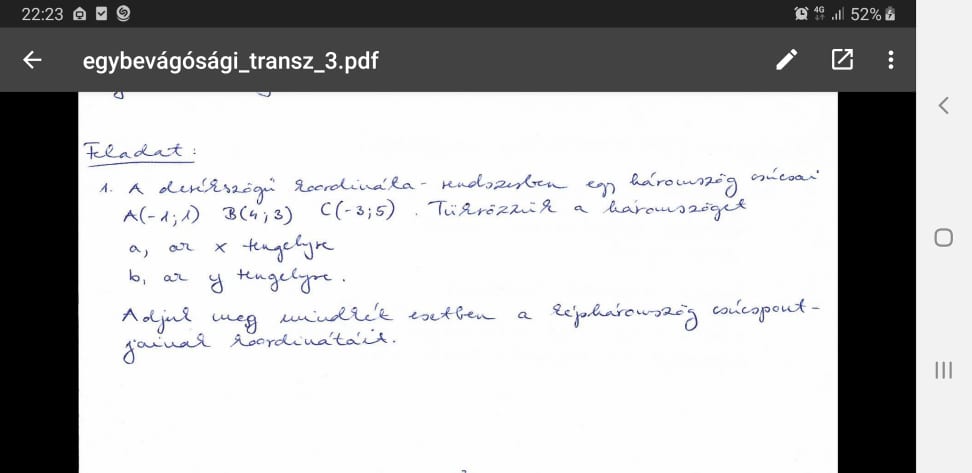 22:23 4G 52%
egybevágósági_transz_3.pdf
Feladat:
1. A derékszögű koordináta-rendszerben egy háromszög csúcsai
A(-1;1) B(4;3) C(-3;5). Tükrözzük a háromszöget
a, az x tengelyre
b, az y tengelyre.
Adjuk meg mindkét esetben a képháromszög csúcspont-
jainak koordinátáit.